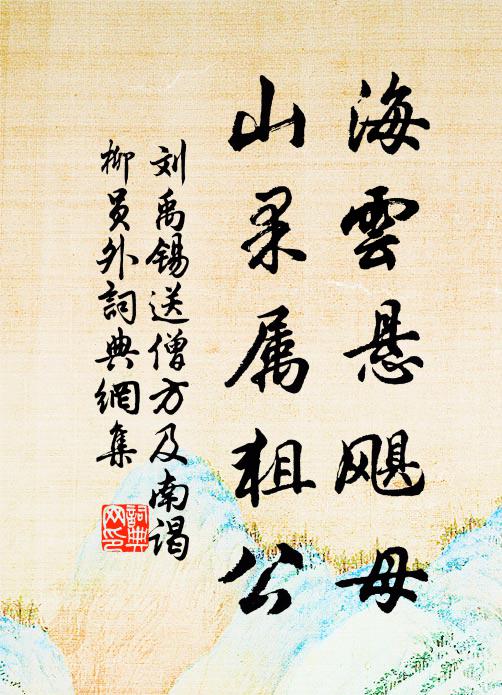 海雲悬飓母
山果属狙公
刘禹锡送僧方及南谒
柳员外詞典網集
詞典
网印